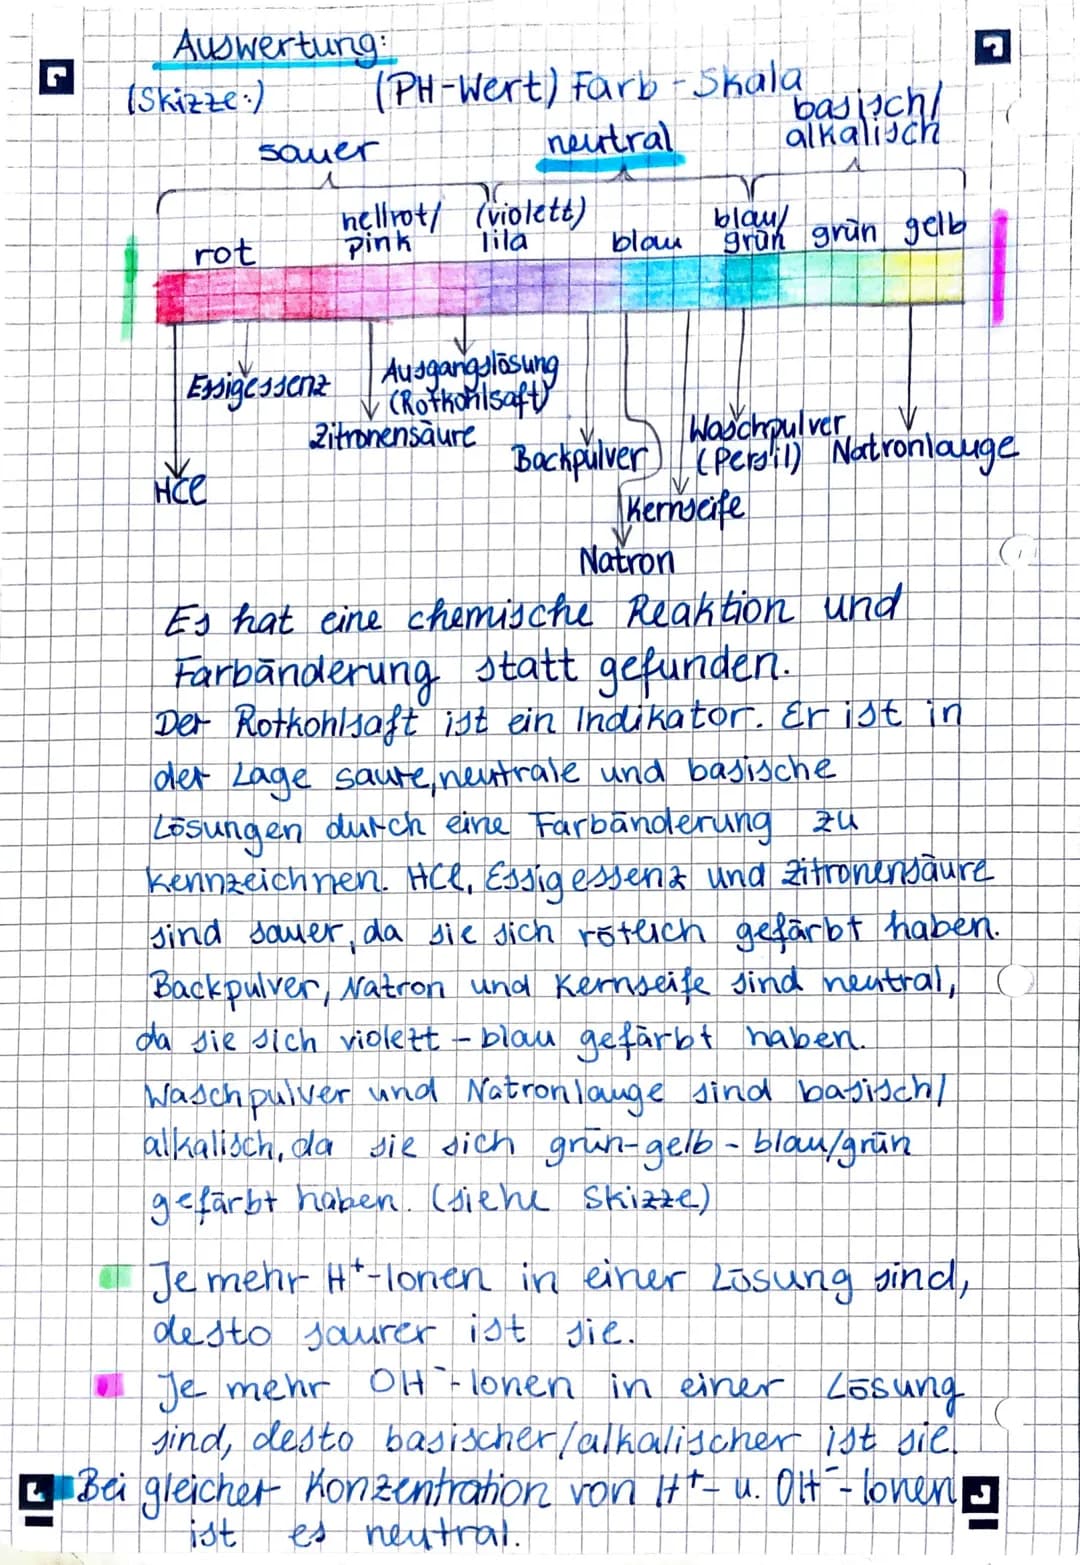 Auswertung:
(Skizze:)
(PH-Wert) Farb-Skala
sauer
neutral
basisch/
alkalisch
rot
hellrot/
pink
(violett)
lila
blau
blau/
grün
grün
gelb
Essigessenz
Ausgangslösung
(Rotkohlsaft)
Zitronensäure
HCl
Backpulver
Waschpulver
(Persil)
Natronlauge
Kernseife
Natron
Es hat eine chemische Reaktion und
Farbänderung statt gefunden.
Der Rotkohlsaft ist ein Indikator. Er ist in
der Lage saure, neutrale und basische
Lösungen durch eine Farbänderung zu
kennzeichnen. HCl, Essigessenz und Zitronensäure
sind sauer, da sie sich rötlich gefärbt haben.
Backpulver, Natron und Kernseife sind neutral,
da sie sich violett - blau gefärbt haben.
Waschpulver und Natronlauge sind basisch/
alkalisch, da sie sich grün-gelb - blau/grün
gefärbt haben. (siehe Skizze)
Je mehr H⁺-Ionen in einer Lösung sind,
desto saurer ist sie.
Je mehr OH⁻-Ionen in einer Lösung
sind, desto basischer/alkalischer ist sie.
Bei gleicher Konzentration von H⁺- u. OH⁻-Ionen
ist es neutral.